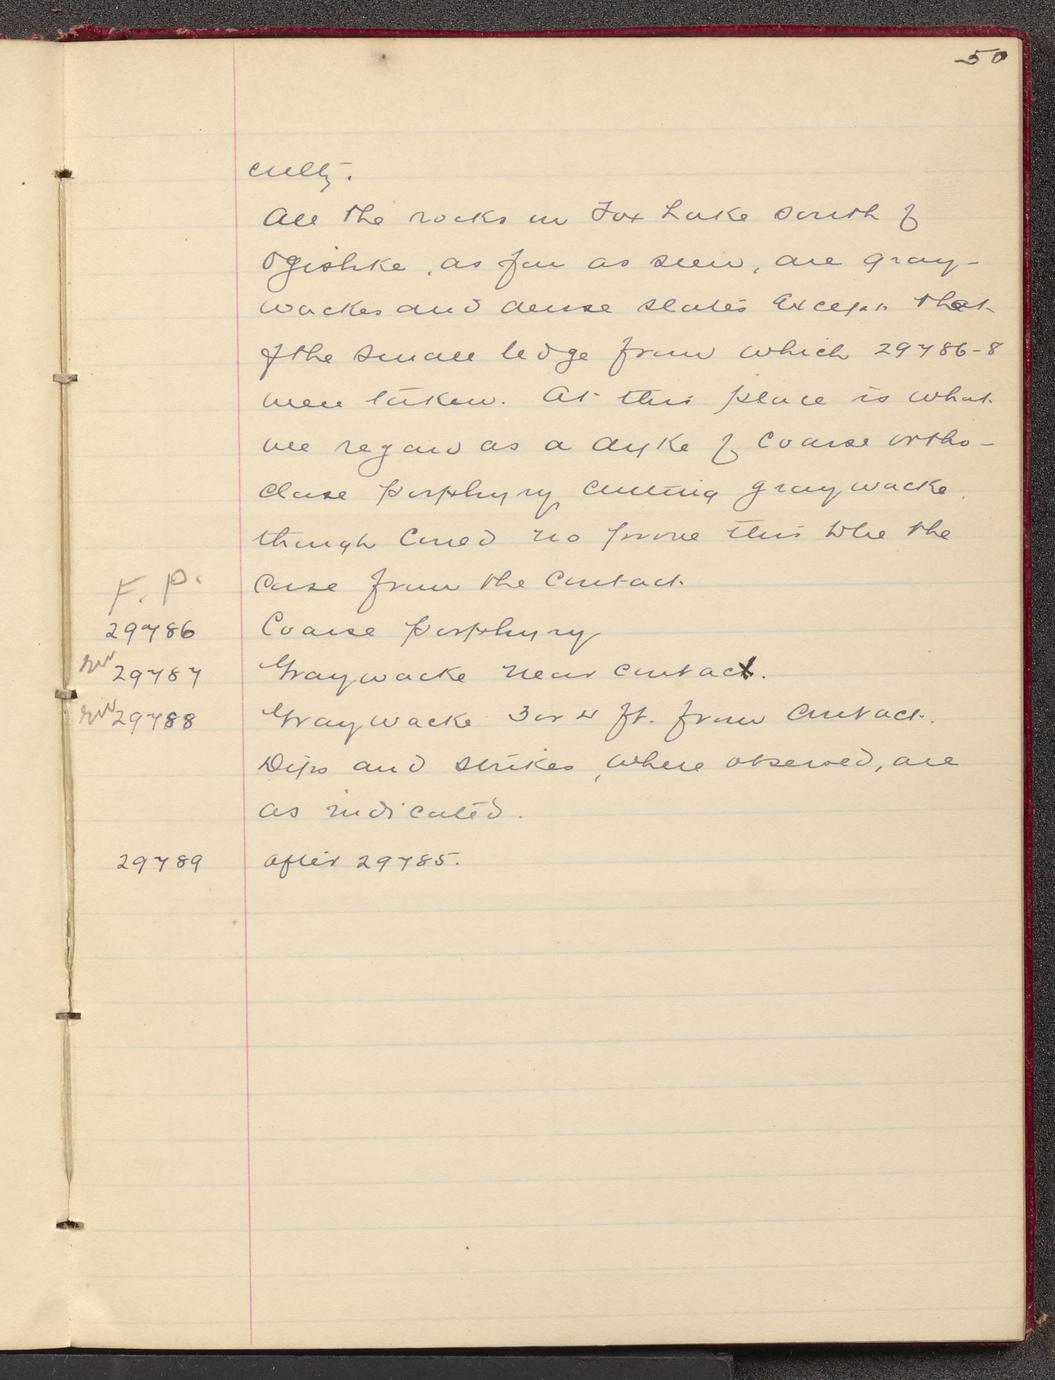 50
culty.
All the rocks on Fox Lake south of
Ogishke, as far as seen, are gray-
wackes and dense slates except that
of the small ledge from which 29786-8
were taken. At this place is what
we regard as a dyke of coarse ortho-
clase porphyry cutting graywacke,
though could no prove this to be the
case from the contact.
F. P.
29786 Coarse porphyry
29787 Graywacke near contact.
29788 Graywacke 3 or 4 ft. from contact.
Dips and strikes, where observed, are
as indicated.
29789 after 29785.